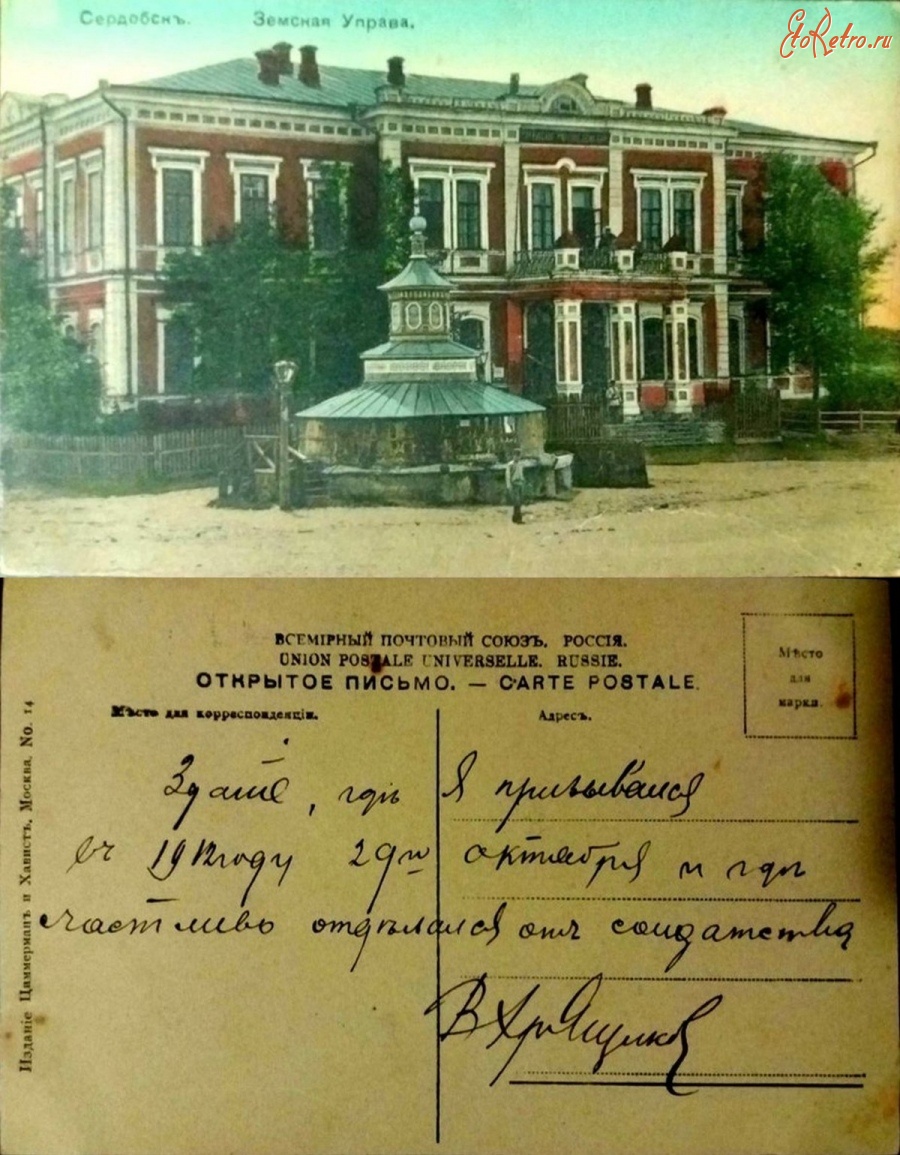 Сердобскъ. Земская Управа.
EtoRetro.ru
ВСЕМІРНЫЙ ПОЧТОВЫЙ СОЮЗЪ. РОССІЯ.
UNION POSTALE UNIVERSELLE. RUSSIE.
ОТКРЫТОЕ ПИСЬМО. — CARTE POSTALE.
Мѣсто для корреспонденціи.
Адресъ.
Мѣсто
для
марки.
Изданіе Циммерманъ и Хавистъ, Москва. No. 14
Зданіе, гдѣ я призывался
въ 1912 году 29го октября и гдѣ
счастливо отдѣлался отъ солдатства